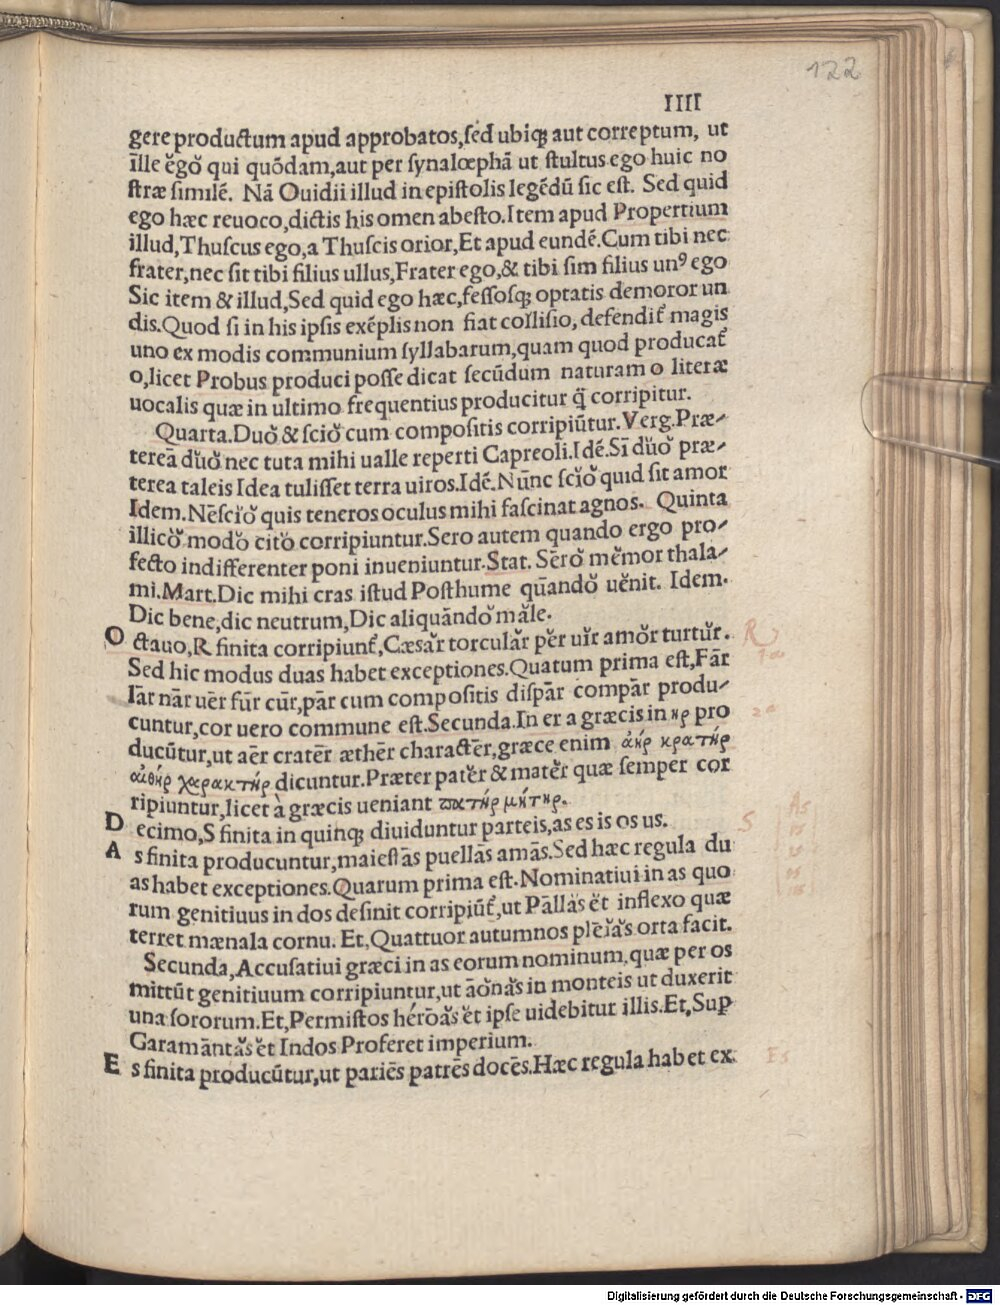 122
IIII
gere productum apud approbatos, sed ubiq; aut correptum, ut
īlle ĕgŏ qui quōdam, aut per synalœphā ut stultus ego huic no
stræ similé. Nā Ouidii illud in epistolis legēdū sic est. Sed quid
ego hæc reuoco, dictis his omen abesto. Item apud Propertium
illud, Thuscus ego, a Thuscis orior, Et apud eundē. Cum tibi nec
frater, nec sit tibi filius ullus, Frater ego, & tibi sim filius unꝰ ego
Sic item & illud, Sed quid ego hæc, fessosq; optatis demoror un
dis. Quod si in his ipsis exēplis non fiat collisio, defendit᷑ magis
uno ex modis communium syllabarum, quam quod producat᷑
o, licet Probus produci posse dicat secūdum naturam o literæ
uocalis quæ in ultimo frequentius producitur q̄ corripitur.
Quarta. Duŏ & sciŏ cum compositis corripiūtur. Verg. Præ-
tereā dŭŏ nec tuta mihi ualle reperti Capreoli. Idē. Sī dŭŏ præ-
terea taleis Idea tulisset terra uiros. Idē. Nūnc scĭŏ quid sit amor
Idem. Nēscĭŏ quis teneros oculus mihi fascinat agnos. Quinta
illicŏ modŏ citŏ corripiuntur. Sero autem quando ergo pro-
fecto indifferenter poni inueniuntur. Stat. Sērŏ mĕmor thala-
mi. Mart. Dic mihi cras istud Posthume quāndŏ uĕnit. Idem.
Dic bene, dic neutrum, Dic aliquāndŏ măle.
O ctauo, R finita corripiunt᷑, Cæsăr torculăr pĕr uĭr amŏr turtŭr.
Sed hic modus duas habet exceptiones. Quatum prima est, Fār
lār nār uēr fūr cūr, pār cum compositis dispār compār produ-
cuntur, cor uero commune est. Secunda. In er a græcis in ηρ pro
ducūtur, ut aēr cratēr æthēr charactēr, græce enim ἀήρ κρατήρ
αἰθήρ χαρακτήρ dicuntur. Præter patĕr & matĕr quæ semper cor
ripiuntur, licet à græcis ueniant πατήρ μήτηρ.
D ecimo, S finita in quinq; diuiduntur parteis, as es is os us.
A s finita producuntur, maiestās puellās amās. Sed hæc regula du
as habet exceptiones. Quarum prima est. Nominatiui in as quo
rum genitiuus in dos desinit corripiūt᷑, ut Pāllăs ĕt inflexo quæ
terret mænala cornu. Et, Quattuor autumnos plēĭăs orta facit.
Secunda, Accusatiui græci in as eorum nominum, quæ per os
mittūt genitiuum corripiuntur, ut āŏnăs in monteis ut duxerit
una sororum. Et, Permistos hērōăs ĕt ipse uidebitur illis. Et, Sup
Garamāntăs ĕt Indos Proferet imperium.
E s finita producūtur, ut pariēs patrēs docēs. Hæc regula habet ex
R
2a
S
As
es
is
os
us
Es
Digitalisierung gefördert durch die Deutsche Forschungsgemeinschaft - DFG